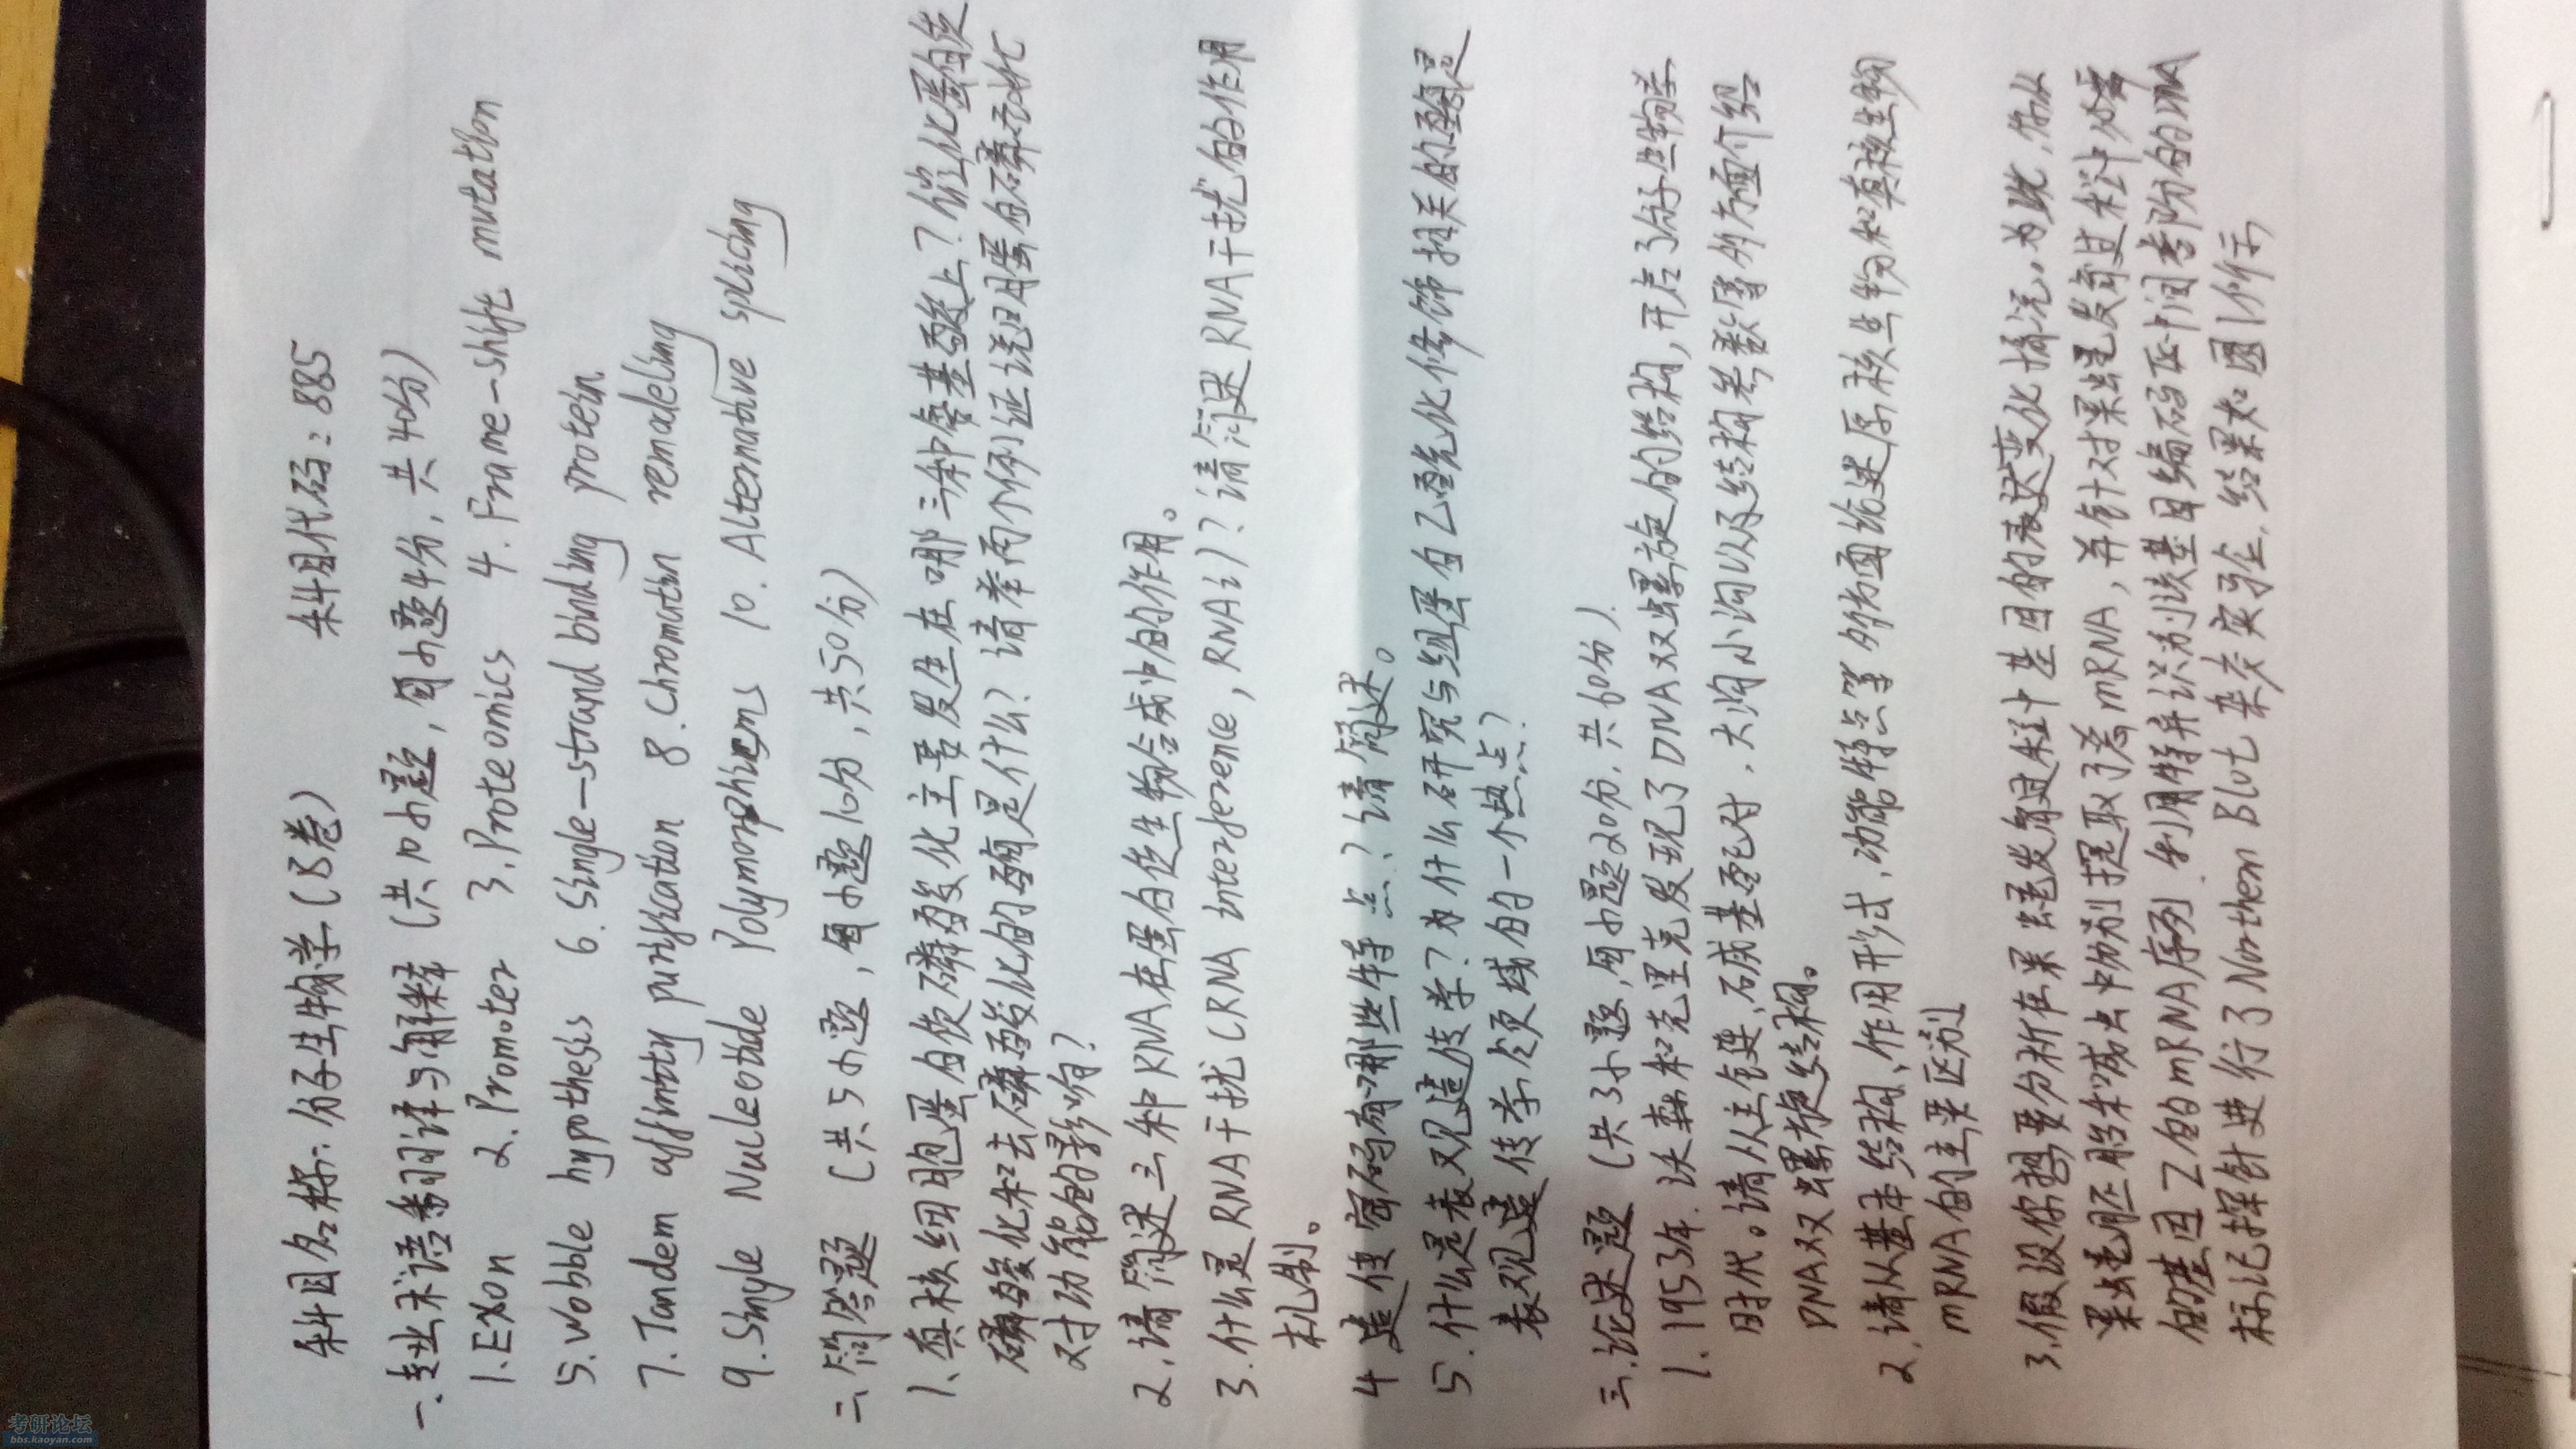 科目名称：分子生物学（B卷） 科目代码：885
一.专业术语翻译与解释（共10小题，每小题4分，共40分）
1.Exon 2.Promoter 3.Proteomics 4.Frame-shift mutation
5.Wobble hypothesis 6.Single-strand binding protein
7.Tandem affinity purification 8.Chromatin remodeling
9.Single Nucleotide Polymorphisms 10.Alternative splicing
二、简答题（共5小题，每小题10分，共50分）
1、真核细胞蛋白质磷酸化主要发生在哪三种氨基酸上？催化蛋白质
磷酸化和去磷酸化的酶是什么？请举两个例证说明蛋白磷酸化
对功能的影响？
2.请简述三种RNA在蛋白质生物合成中的作用。
3.什么是RNA干扰（RNA interference，RNAi）？请简述RNA干扰的作用
机制。
4 遗传密码有哪些特点？请简述。
5.什么是表观遗传学？为什么研究与组蛋白乙酰化修饰相关的酶是
表观遗传学领域的一个热点？
三.论述题（共3小题，每小题20分，共60分）.
1.1953年.沃森和克里克发现了DNA双螺旋的结构，开启了分子生物学
时代。请从主链、碱基配对、大沟小沟以及结构参数等方面介绍
DNA双螺旋结构。
2.请从基本结构、作用形式、功能特点等方面论述原核生物和真核生物
mRNA的主要区别
3.假设你想要分析在果蝇发育过程中基因的表达变化情况。为此，你从
果蝇胚胎和成虫中分别提取了总mRNA，并针对果蝇发育过程中必需
的基因Z的mRNA序列.利用特异识别该基因编码区中间部分的DNA
标记探针进行了Northern Blot杂交实验.结果如图1所示
考研论坛
bbs.kaoyan.com